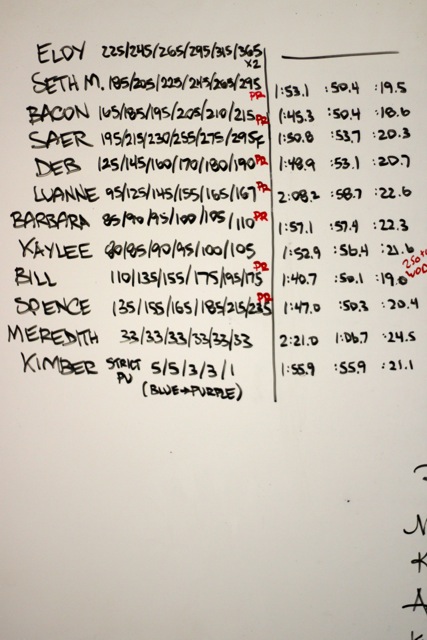 ELOY 225/245/265/295/315/365 x2
SETH M. 185/205/225/245/265/295 PR 1:53.1 :50.4 :19.5
BACON 165/185/195/205/210/215 PR 1:45.3 :50.4 :18.6
SAER 195/215/230/255/275/295f 1:50.8 :53.7 :20.3
DEB 125/145/160/170/180/190 PR 1:48.9 :53.1 :20.7
LUANNE 95/125/145/155/165/167 PR 2:08.2 :58.7 :22.6
BARBARA 85/90/95/100/105/110 PR 1:57.1 :57.4 :22.3
KAYLEE 80/85/90/95/100/105 1:52.9 :56.4 :21.6
BILL 110/135/155/175/195/175 PR 1:40.7 :50.1 :19.0
SPENCE 135/155/165/185/215/235 PR 1:47.0 :50.3 :20.4
MEREDITH 33/33/33/33/33/33 2:21.0 1:06.7 :24.5
KIMBER STRICT PU 5/5/3/3/1 1:55.9 :55.9 :21.1
(BLUE→PURPLE)